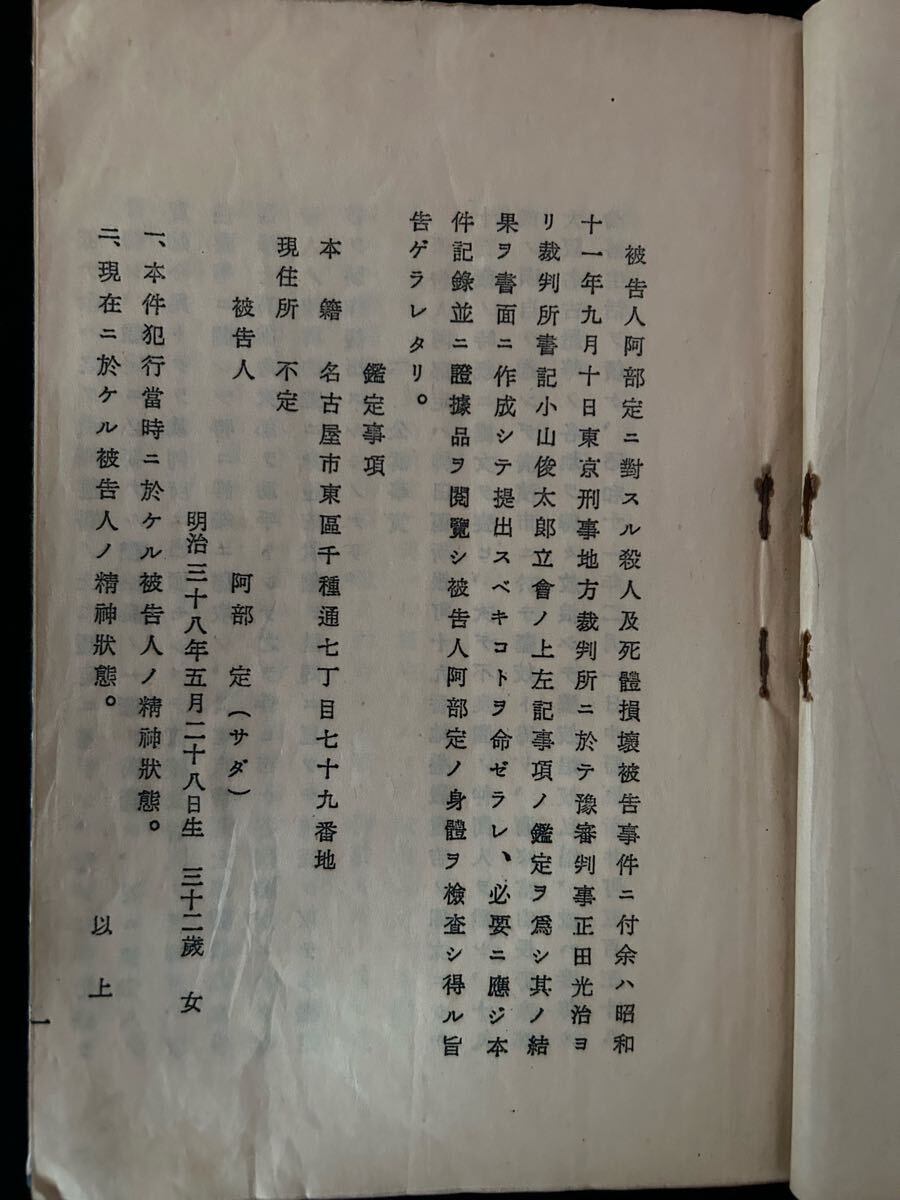 被告人阿部定ニ對スル殺人及死體損壞被告事件ニ付余ハ昭和
十一年九月十日東京刑事地方裁判所ニ於テ豫審判事正田光治ヨ
リ裁判所書記小山俊太郎立會ノ上左記事項ノ鑑定ヲ爲シ其ノ結
果ヲ書面ニ作成シテ提出スベキコトヲ命ゼラレ、必要ニ應ジ本
件記錄並ニ證據品ヲ閱覽シ被告人阿部定ノ身體ヲ檢査シ得ル旨
告ゲラレタリ。
鑑定事項
本籍 名古屋市東區千種通七丁目七十九番地
現住所 不定
被告人 阿部 定(サダ)
明治三十八年五月二十八日生 三十二歲 女
一、本件犯行當時ニ於ケル被告人ノ精神狀態。
二、現在ニ於ケル被告人ノ精神狀態。 以上
一